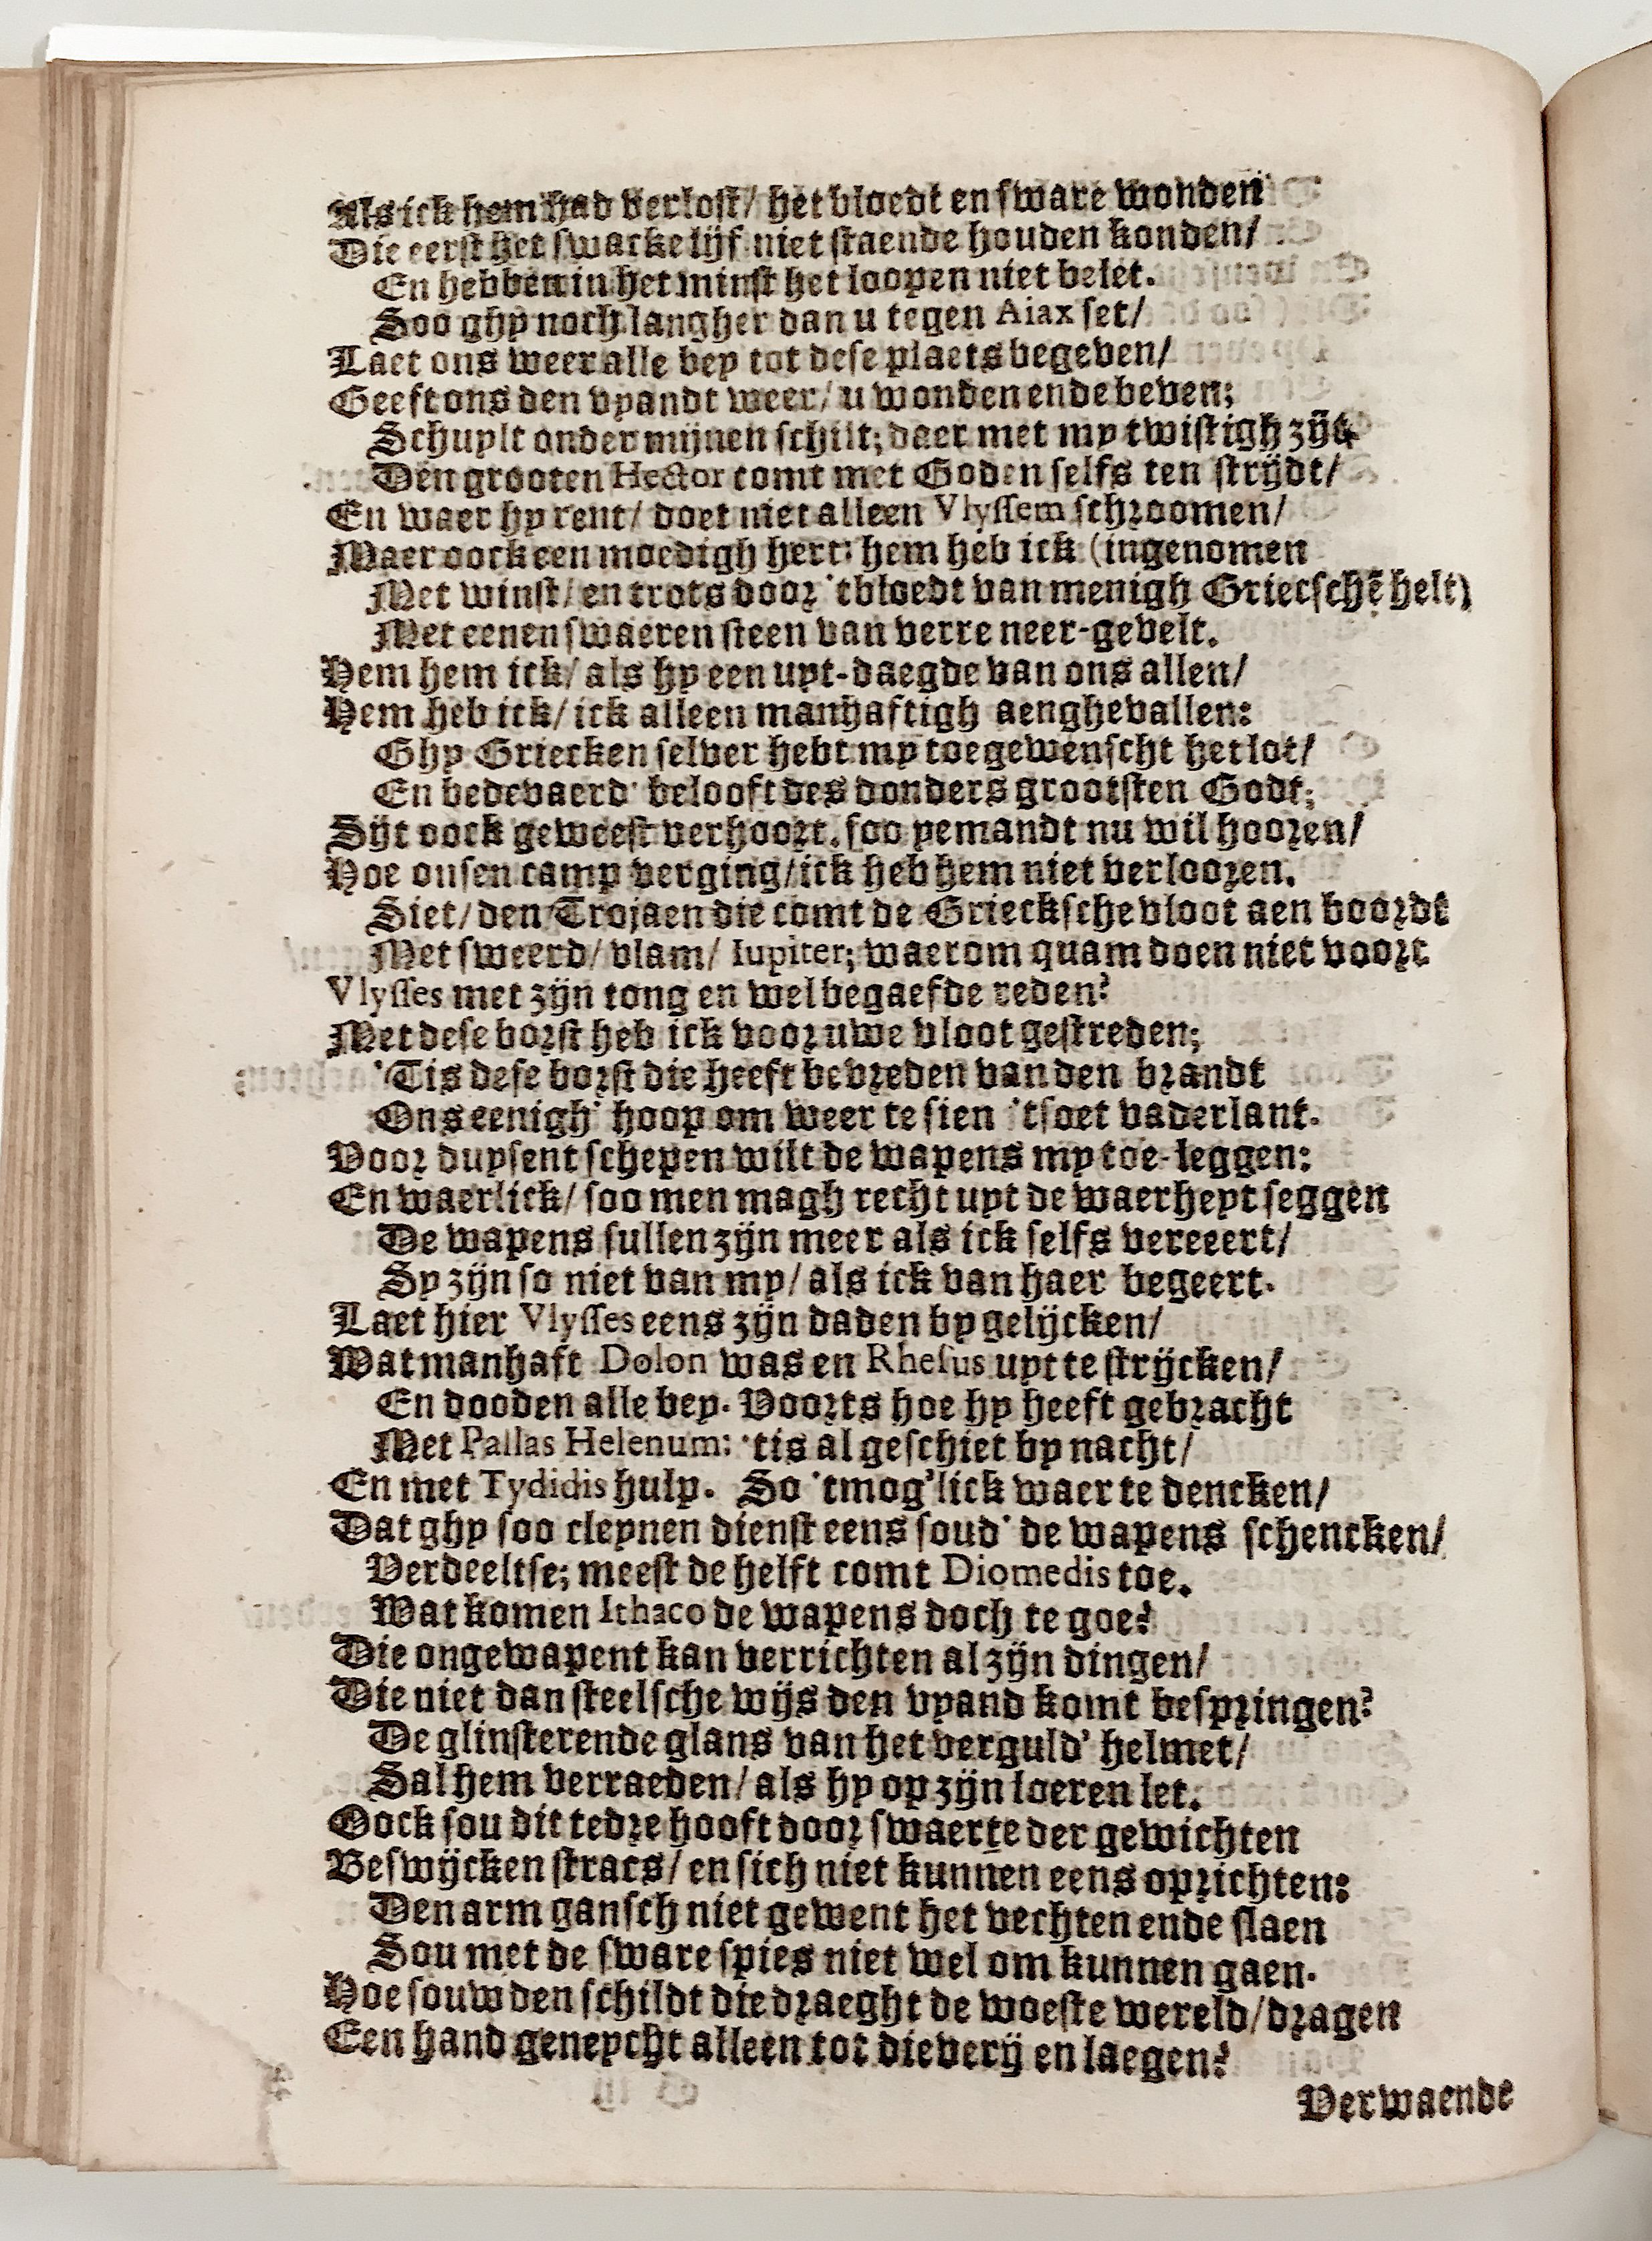 Als ick hem had verlost/ het bloedt en sware wonden
Die eerst het swacke lijf niet staende houden konden/
En hebben in het minst het loopen niet belet.
Soo ghy noch langher dan u tegen Aiax set/
Laet ons weer alle bey tot dese plaets begeven/
Geeft ons den vyandt weer/ u wonden ende beven;
Schuylt onder mijnen schilt; daer met my twistigh zijt.
Den grooten Hector comt met Goden selfs ten strijdt/
En waer hy rent/ doet niet alleen Vlyssem schroomen/
Maer oock een moedigh hert: hem heb ick (ingenomen
Met winst/ en trots door 'tbloedt van menigh Griecschē helt)
Met eenen swaeren steen van verre neer-gevelt.
Hem hem ick/ als hy een uyt-daegde van ons allen/
Hem heb ick/ ick alleen manhaftigh aenghevallen:
Ghy Griecken selver hebt my toegewenscht het lot/
En bedevaerd' belooft des donders grootsten Godt;
Sijt oock geweest verhoort. soo yemandt nu wil hooren/
Hoe onsen camp verging/ ick heb hem niet verlooren.
Siet/ den Trojaen die comt de Griecksche vloot aen boordt
Met sweerd/ vlam/ Iupiter; waerom quam doen niet voort
Vlysses met zijn tong en wel begaefde reden?
Met dese borst heb ick voor uwe vloot gestreden;
'Tis dese borst die heeft bevreden van den brandt
Ons eenigh' hoop om weer te sien 'tsoet vaderlant.
Voor duysent schepen wilt de wapens my toe-leggen:
En waerlick/ soo men magh recht uyt de waerheyt seggen
De wapens sullen zijn meer als ick selfs vereeert/
Sy zijn so niet van my/ als ick van haer begeert.
Laet hier Vlysses eens zijn daden by gelijcken/
Wat manhaft Dolon was en Rhesus uyt te strijcken/
En dooden alle bey. Voorts hoe hy heeft gebracht
Met Pallas Helenum: 'tis al geschiet by nacht/
En met Tydidis hulp. So 'tmog'lick waer te dencken/
Dat ghy soo cleynen dienst eens soud' de wapens schencken/
Verdeeltse; meest de helft comt Diomedis toe.
Wat komen Ithaco de wapens doch te goe?
Die ongewapent kan verrichten al zijn dingen/
Die niet dan steelsche wijs den vyand komt bespringen?
De glinsterende glans van het verguld' helmet/
Sal hem verraeden/ als hy op zijn loeren let.
Oock sou dit tedre hooft door swaerte der gewichten
Beswijcken stracs/ en sich niet kunnen eens oprichten:
Den arm gansch niet gewent het vechten ende slaen
Sou met de sware spies niet wel om kunnen gaen.
Hoe souw den schildt die draeght de woeste wereld/ dragen
Een hand geneycht alleen tot dieverij en laegen?
Verwaende